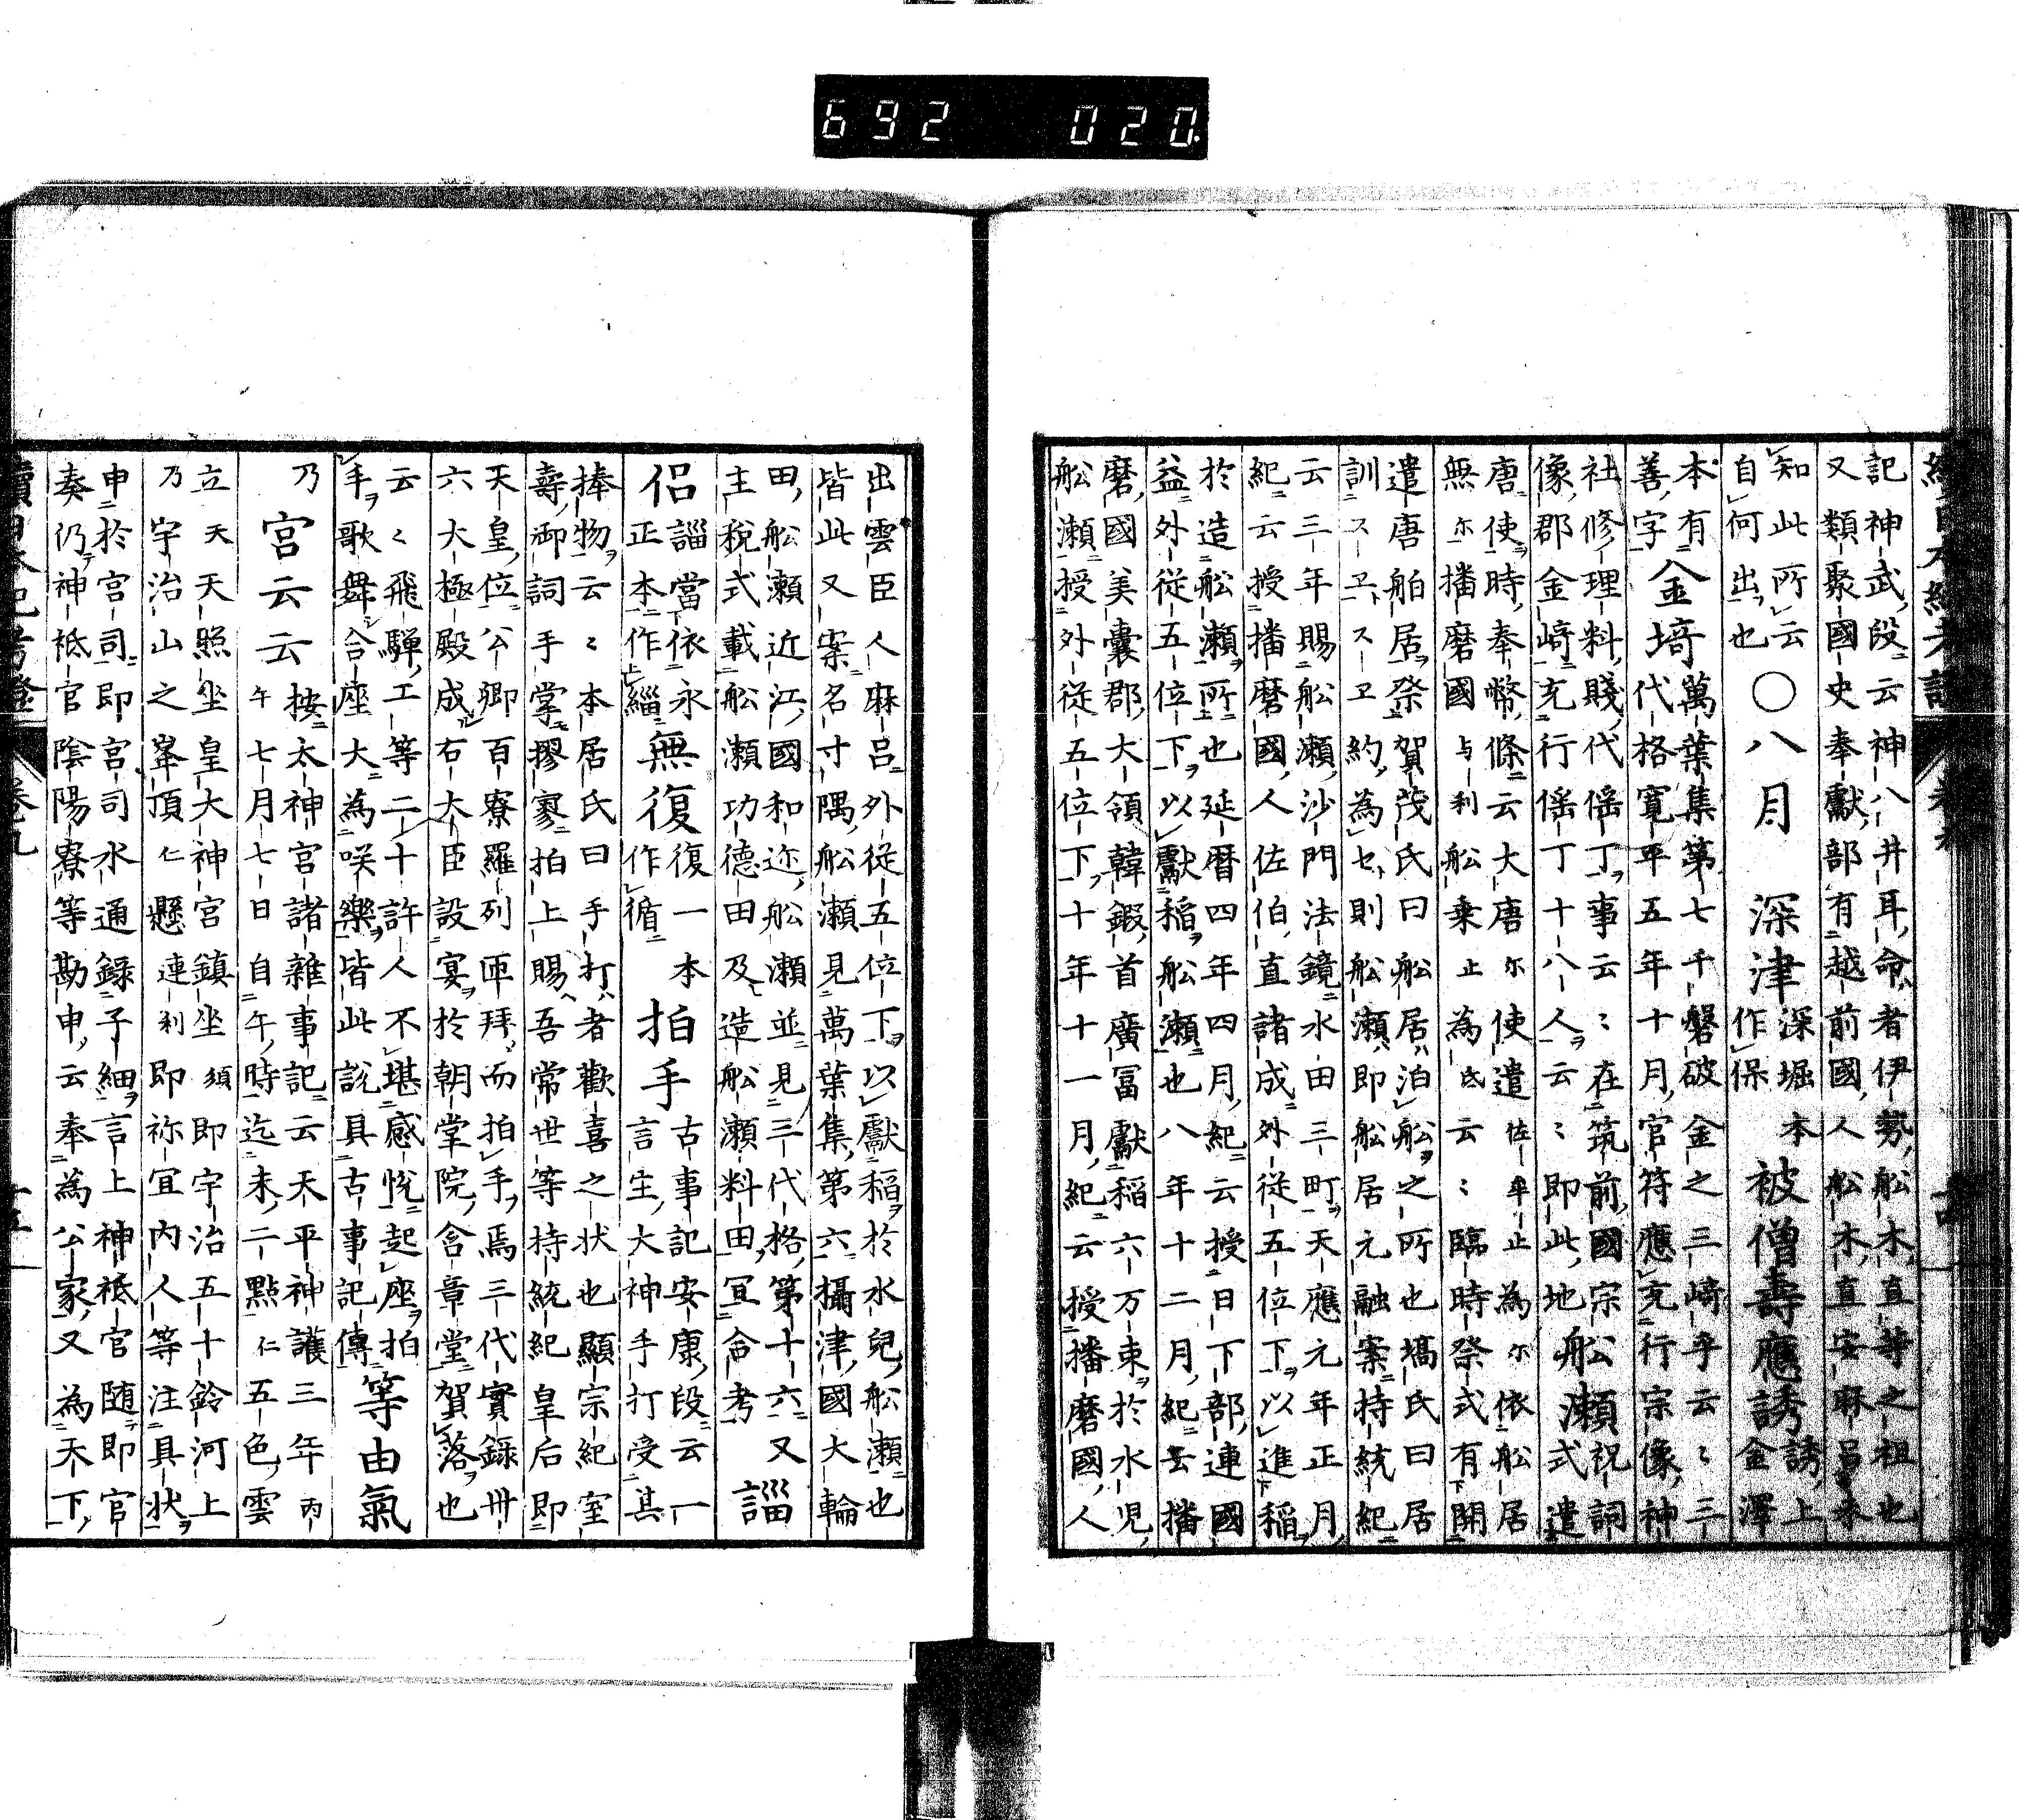 692 020.
記神武段云神八井耳命者伊勢船木直等之祖也
又類聚國史奉獻部有越前國人船木直安麻呂未
知此所云
自何出也
〇八月 深津
深堀本
作保
被僧壽應誘
誘上
金澤
本有
善字
金埼
萬葉集第七千磐破金之三崎乎云〻三
代格寬平五年十月官符應充行宗像神
社修理料賤代傜丁事云〻在筑前國宗
像郡金﨑充行傜丁十八人云〻即此地
船瀬
祝詞
式遣
唐使時奉幣條云大唐尓使遣佐牟止為尓依船居
無尓播磨國与利船乗止為氐云〻臨時祭式有開
遣唐舶居祭賀茂氏曰船居泊船之所也塙氏曰居
訓スヱスヱ約為セ則船瀬即船居元融案持統紀
云三年賜船瀬沙門法鏡水田三町天應元年正月
紀云授播磨國人佐伯直諸成外従五位下以進稲
於造船瀬所也延暦四年四月紀云授日下部連國
益外従五位下以獻稲船瀬也八年十二月紀云播
磨國美嚢郡大領韓鍜首廣冨獻稲六万束於水児
船瀬授外従五位下十年十一月紀云授播磨國人
出雲臣人麻呂外従五位下以獻稲於水兒船瀬也
皆此又案名寸隅船瀬見萬葉集第六攝津國大輪
田船瀬近江國和迩船瀬並見三代格第十六又
主税式載船瀬功德田及造船瀬料田冝合考
諨侶
諨當依永
正本作緇
無復
復一本
作循
拍手
古事記安康段云一
言主大神手打受其
捧物云〻本居氏曰手打者歡喜之状也顯宗紀室
壽御詞手掌摎寥拍上賜吾常世等持統紀皇后即
天皇位公卿百寮羅列匝拜而拍手焉三代實錄卅
六大極殿成右大臣設宴於朝堂院含章堂賀落也
云〻飛騨工等二十許人不堪感悦起座拍
手歌舞合座大為咲樂皆此説具古事記傳
等由氣
乃宮云云
按太神宮諸雜事記云天平神護三年丙
午七月七日自午時迄未二點仁五色雲
立天天照坐皇大神宮鎮坐須即宇治五十鈴河上
乃宇治山之峯頂仁懸連利即祢宜内人等注具状
申於宮司即宮司水通録子細言上神祗官随即官
奏仍神祗官陰陽寮等勘申云奉為公家又為天下